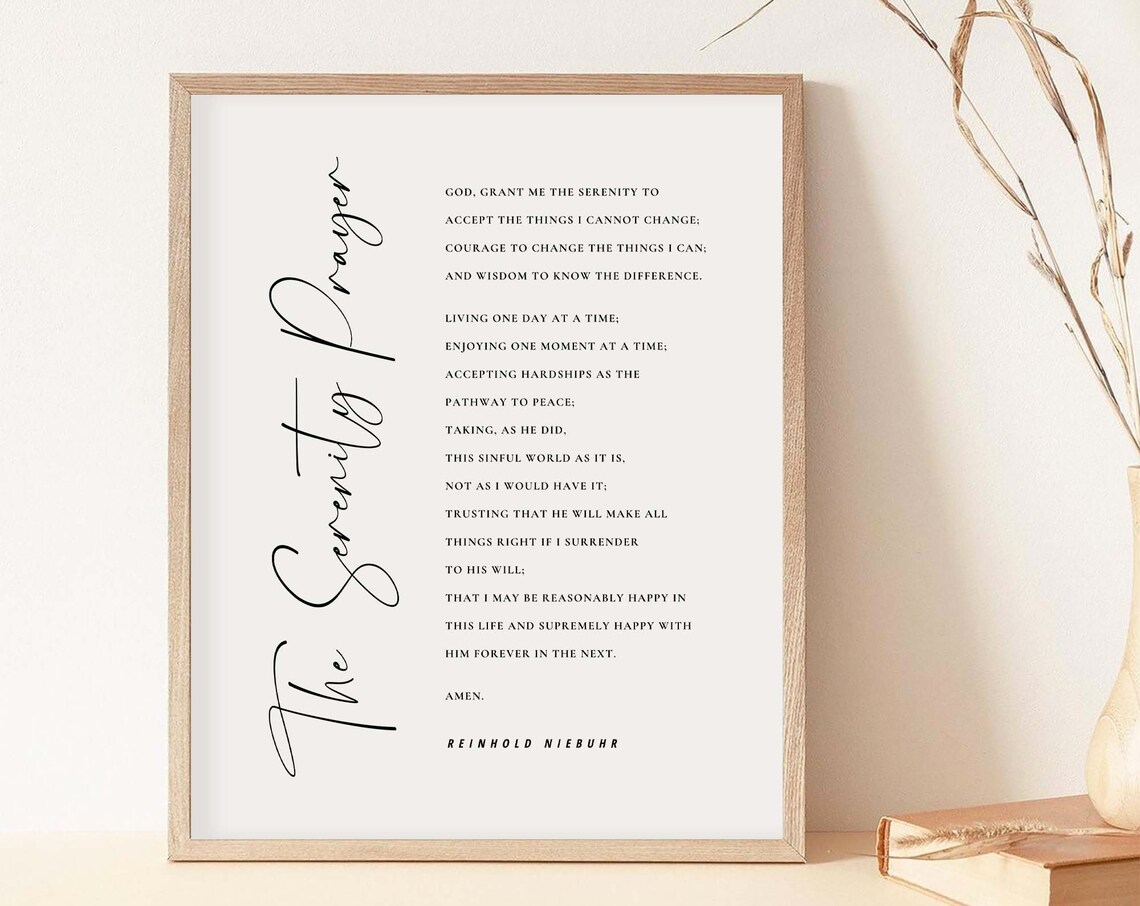 The Serenity Prayer
GOD, GRANT ME THE SERENITY TO
ACCEPT THE THINGS I CANNOT CHANGE;
COURAGE TO CHANGE THE THINGS I CAN;
AND WISDOM TO KNOW THE DIFFERENCE.
LIVING ONE DAY AT A TIME;
ENJOYING ONE MOMENT AT A TIME;
ACCEPTING HARDSHIPS AS THE
PATHWAY TO PEACE;
TAKING, AS HE DID,
THIS SINFUL WORLD AS IT IS,
NOT AS I WOULD HAVE IT;
TRUSTING THAT HE WILL MAKE ALL
THINGS RIGHT IF I SURRENDER
TO HIS WILL;
THAT I MAY BE REASONABLY HAPPY IN
THIS LIFE AND SUPREMELY HAPPY WITH
HIM FOREVER IN THE NEXT.
AMEN.
REINHOLD NIEBUHR